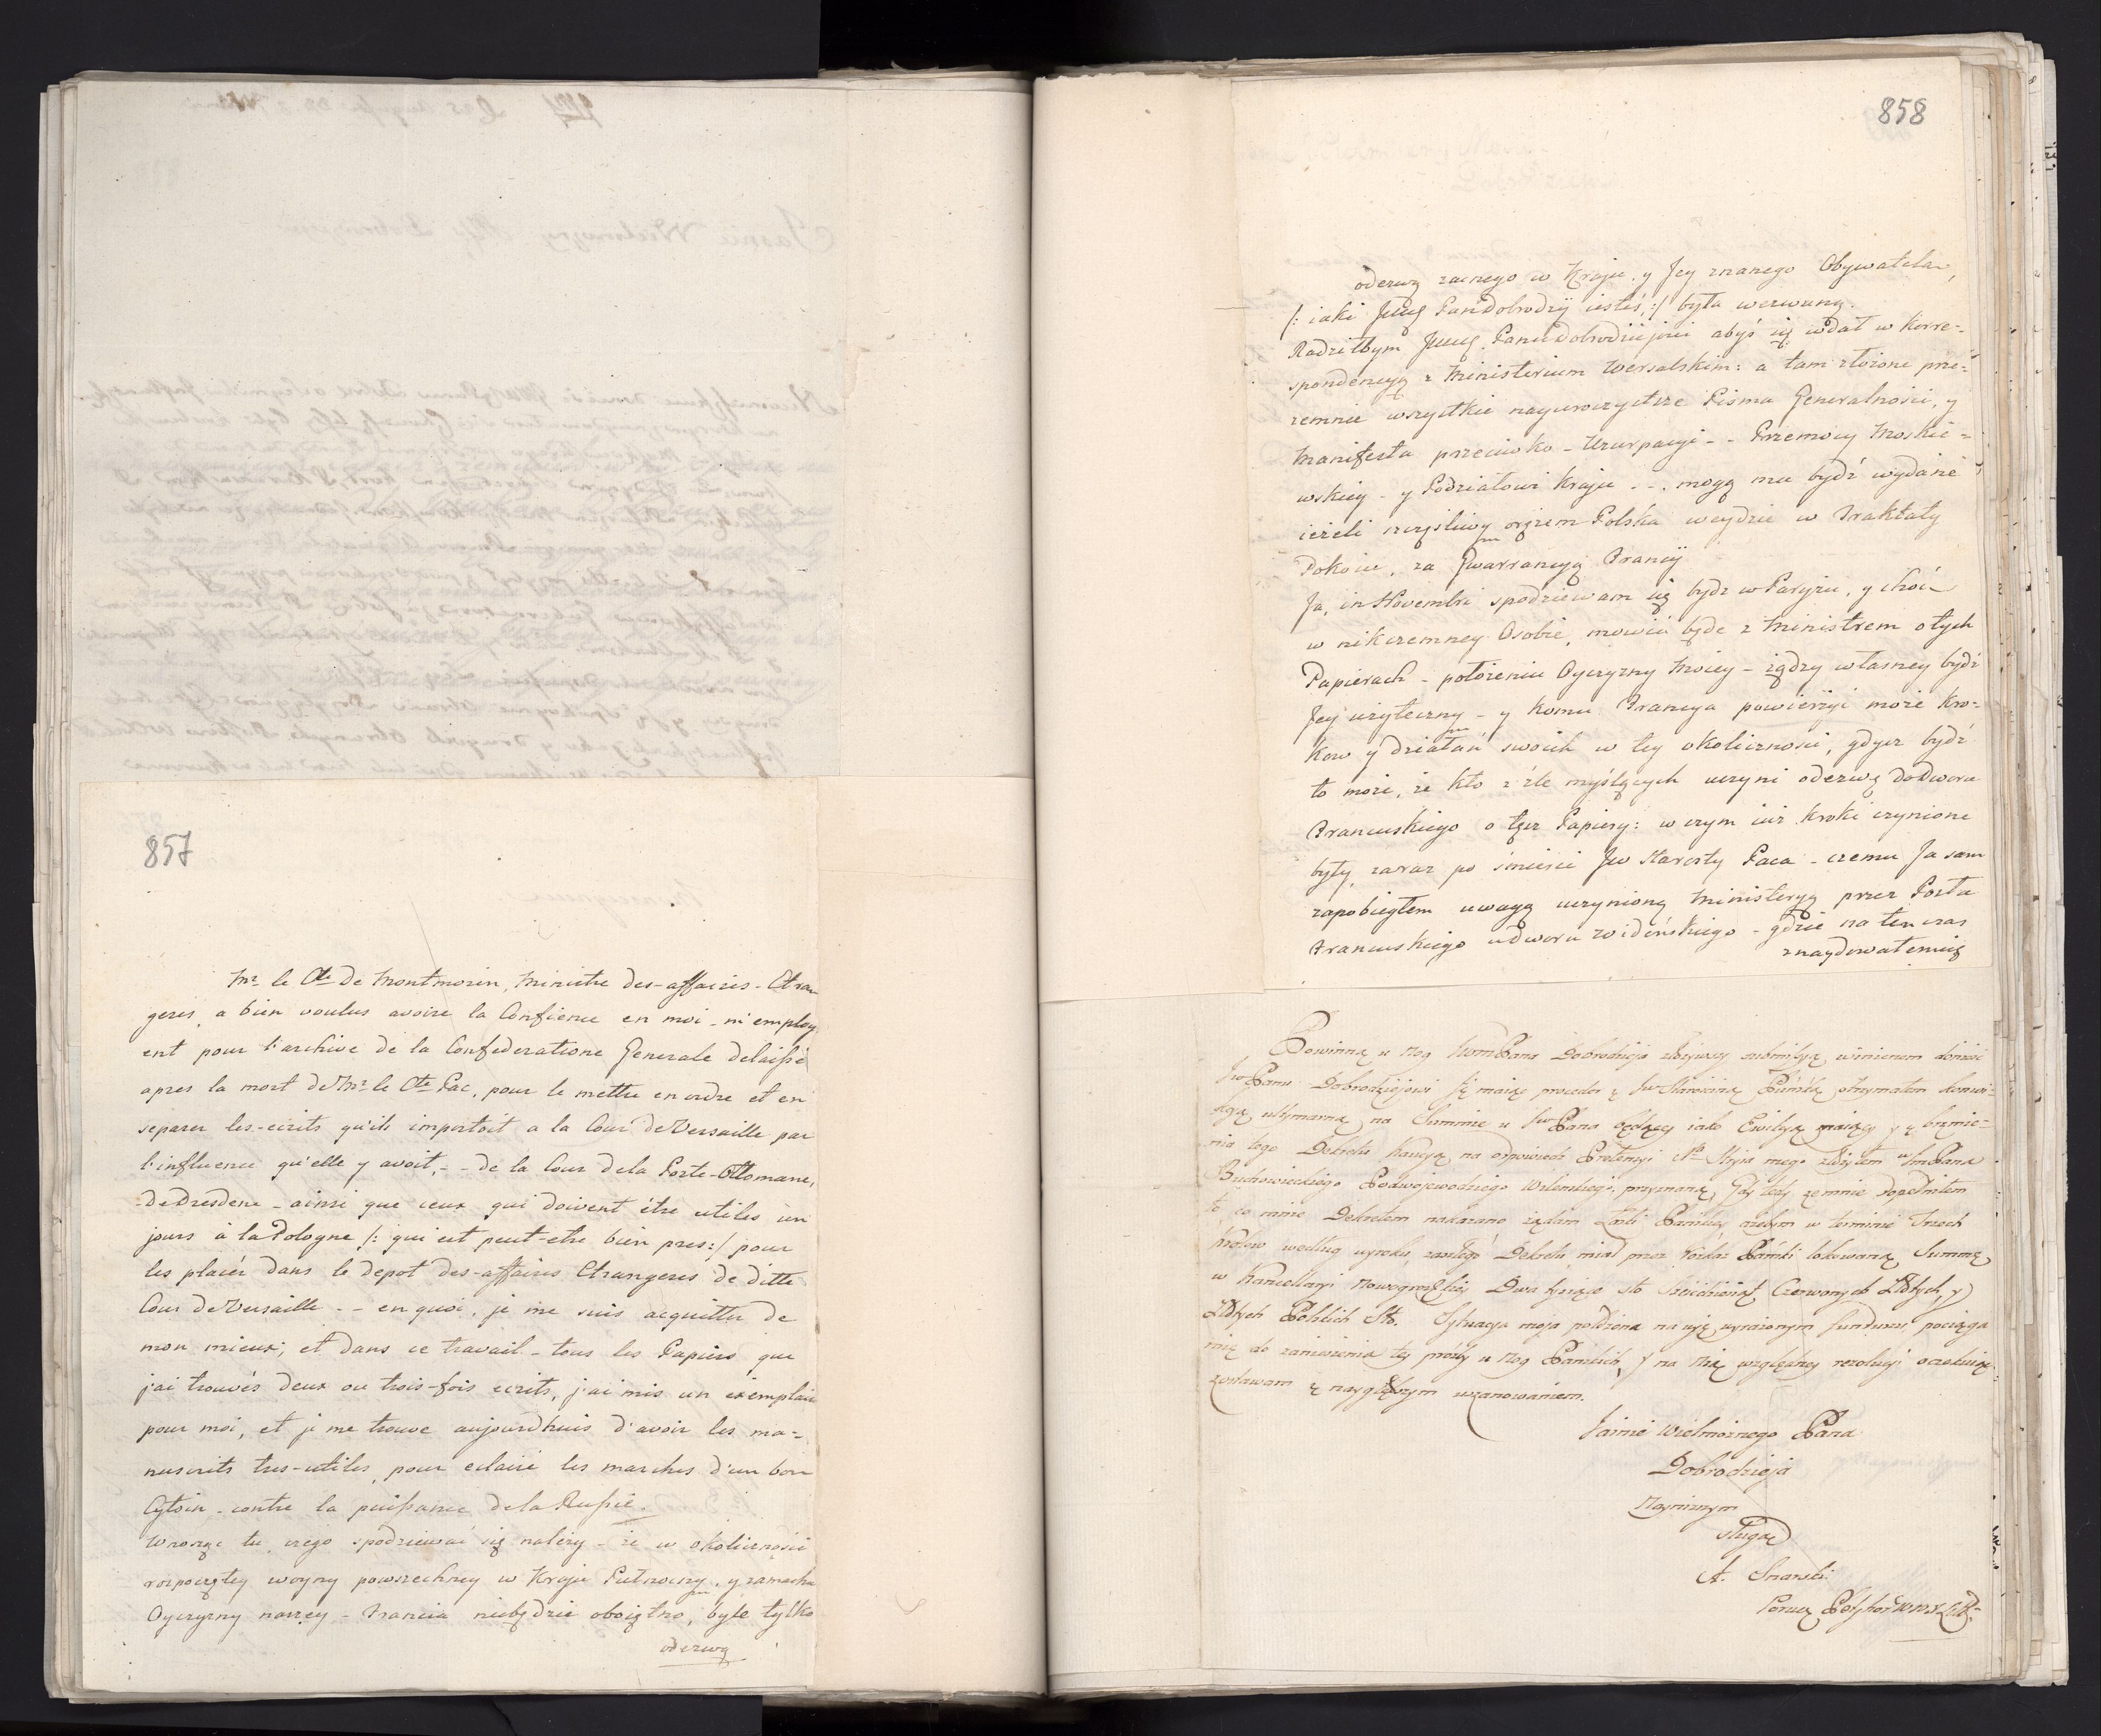 857
Mr. le Cte de Montmorin, Ministre des-affaires-Etran
geres, a bien voulus avoire la Confience en moi - m'employ
ent pour l'archive de la Confederatione Generale delaissé
apres la mort de Mr. le Cte Pac, pour le mettre en ordre et en
separer les-ecrits qu'ils importoit a la Cour de Versaille par
l'influence qu'elle y avoit, - - de la Cour de la Porte-Ottomane,
de Dresdene - ainsi que ceux qui doivent étre utiles un
jours à la Pologne /: qui est peut-etre bien pres :/ pour
les placér dans le depot des-affaires Etrangeres de ditte
Cour de Versaille - - en quoi, je me suis acquitter de
mon mieux; et dans ce travail - tous les Papiers que
j'ai trouvés deux ou trois-fois ecrits, j'ai mis un exemplair
pour moi, et je me trouve aujourdhuis d'avoir les ma=
nuscrits tres-utiles, pour eclairé les marches d'un bon
Cytoin - contre la puissance de la Russie.
Wnosząc tu, czego spodziewać się należy - że w okoliczności
rozpoczętey woyny powszechney w Kraju Pułnocny, y zamachu
Oyczyzny naszey - Francia niebędzie oboiętno, byle tylko
odezwą
858
odezwą zacnego w Kraju y Jey znanego Obywatela,
/: iaki JWWg PanDobrodzij iesteś, :/ była wezwaną.
Radziłbym JWWg PanuDobrodziejowi abyś się wdał w Korre=
spondencyą z Ministerium Wersalskim: a tam złożone prze=
zemnie wszystkie nayuroczystsze Pisma Generalności, y
Manifesta przeciwko - Uzurpacyi - - Przemocy Moskie=
wskiey - y Podziałowi Kraju - -, mogą mu bydź wydane
ieżeli szczęśliwy orężem Polska weydzie w Traktaty
Pokoiu, za Gwarrancyą Francij
Ja, in Novembri spodziewam się bydz w Paryżu, y choć
w nikczemney Osobie, mowić będe z Ministrem o tych
Papierach - położeniu Oyczyzny Moiey - żądzy własney bydź
Jey użyteczny - y komu Francya powierzyć może kro=
kow y działań swoich w tey okoliczności, gdyż bydź
to może, że kto z źle myślących uczyni odezwę do Dworu
Francuskiego o tęż Papiery: w czym iuż kroki czynione
były zaraz po śmierci JW Starosty Paca - czemu Ja sam
zapobiegłem uwagą uczynioną Ministeryą przez Posła
Francuskiego u dworu Widéńskiego - gdzie na ten czas
znaydowałemsię
Powinną u Nog JWmPana Dobrodzieja złożywszy submissyą, winienem donieść
JwPanu Dobrodziejowi Jż maiąc proceder z Jw Starościną Pińską otrzymałem
na Summie u JwPana będącey iako Ewikcyą
nia tego Dekretu kaucyą na odpowiedź Pretensyi Np. Stryia mego złożyłem u ImPana
Buchowieckiego Podwojewodziego Wileńskiego, przyznaną, Gdy tedy zemnie dopełniłem
to co mnie Dekretem nakazano żądam Łaski Pańskiey ażebym w terminie Trzech
Krolow według wyroku zaszłego Dekretu, miał przez Rozkaz Pański lokowaną Summę
w Kancellaryi Nowogrodzkiey Dwa tysiące sto sześćdziesiąt Czerwonych Złłtych, y
Złłtych Polskich Sto. Sytuacya moja położona na wyż wyrażonym funduszu, pociąga
mię do zaniesienia tey prozby u Nog Pańskich, y na Nią względney rezolucyi oczekuiąc
zostawam z naygłębszym uszanowaniem.
Jaśnie Wielmożnego Pana
Dobrodzieja
Nayniższym
sługą
A.